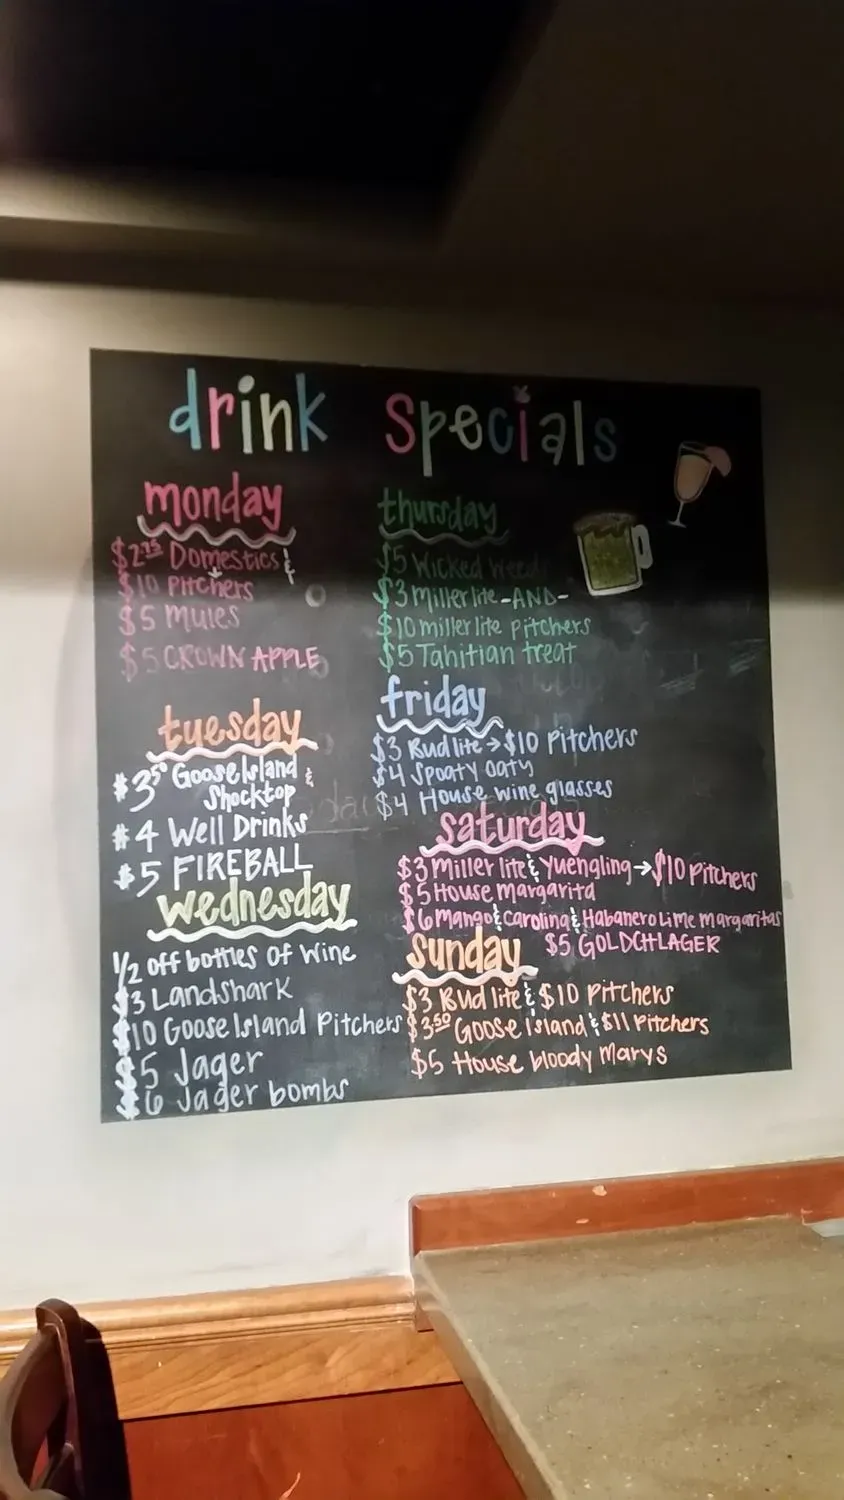 drink specials
monday
$2.75 Domestics &
$10 Pitchers
$5 Mules
$5 CROWN APPLE
tuesday
$3.50 Goose Island &
Shocktop
$4 Well Drinks
$5 FIREBALL
wednesday
1/2 off bottles of wine
$3 Landshark
$10 Goose Island Pitchers
$5 Jager
$6 Jager bombs
thursday
$5 Wicked Weed
$3 Miller lite -AND-
$10 miller lite pitchers
$5 Tahitian treat
friday
$3 Bud lite → $10 Pitchers
$4 Spoaty Oaty
$4 House wine glasses
saturday
$3 Miller lite & Yuengling → $10 Pitchers
$5 House margarita
$6 Mango & Carolina & Habanero Lime margaritas
$5 GOLDCHLAGER
sunday
$3 Bud lite & $10 Pitchers
$3.50 Goose Island & $11 Pitchers
$5 House bloody Marys